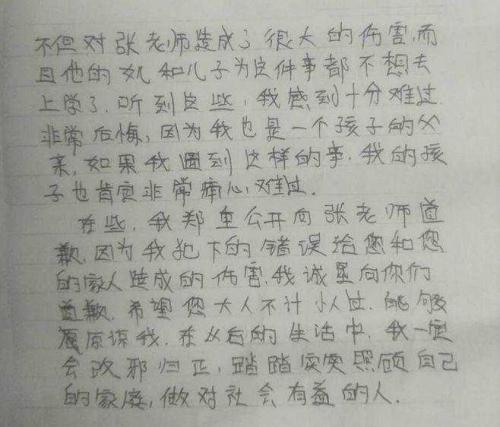 不但对张老师造成了很大的伤害,而
且他的女儿和儿子为这件事都不想去
上学了.听到这些,我感到十分难过
非常后悔,因为我也是一个孩子的父
亲,如果我遇到这样的事,我的孩
子也肯定非常痛心,难过.
在些,我郑重公开向张老师道
歉,因为我犯下的错误给您和您
的家人造成的伤害,我诚恳向你们
道歉.希望您大人不计小人过.能够
原谅我.在以后的生活中,我一定
会改邪归正,踏踏实实照顾自己
的家庭,做对社会有益的人.